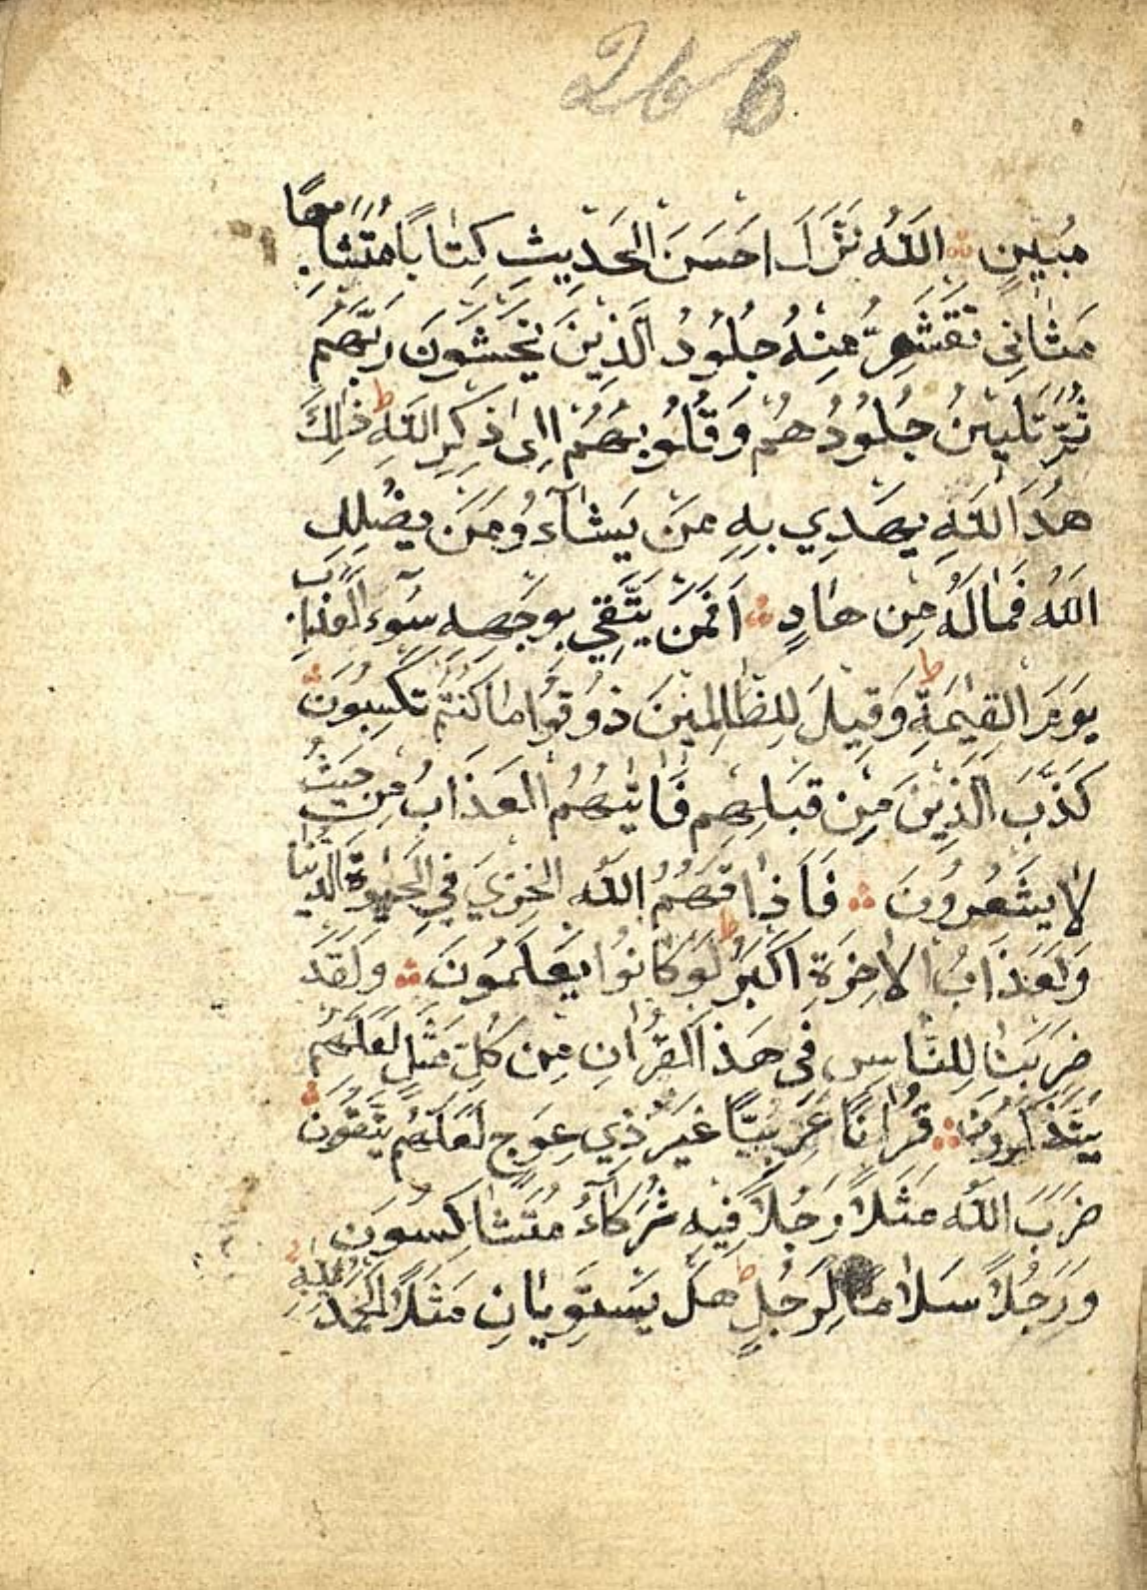 266
مُبِينٍ ۞ اَللّٰهُ نَزَّلَ اَحْسَنَ الْحَدِيثِ كِتَابًا مُتَشَابِهًا
مَثَانِيَ تَقْشَعِرُّ مِنْهُ جُلُودُ الَّذِينَ يَخْشَوْنَ رَبَّهُمْ
ثُمَّ تَلِينُ جُلُودُهُمْ وَقُلُوبُهُمْ اِلٰى ذِكْرِ اللّٰهِ ط ذٰلِكَ
هُدَ اللّٰهِ يَهْدِي بِهِ مَنْ يَشَآءُ وَمَنْ يُضْلِلِ
اللّٰهُ فَمَالَهُ مِنْ هَادٍ ۞ اَفَمَنْ يَتَّقِي بِوَجْهِهِ سُوءَ الْعَذَابِ
يَوْمَ الْقِيٰمَةِ ط وَقِيلَ لِلظَّالِمِينَ ذُوقُوا مَا كُنْتُمْ تَكْسِبُونَ ۞
كَذَّبَ الَّذِينَ مِنْ قَبْلِهِمْ فَاَتٰيهُمُ الْعَذَابُ مِنْ حَيْثُ
لَا يَشْعُرُونَ ۞ فَاَذَاقَهُمُ اللّٰهُ الْخِزْيَ فِي الْحَيٰوةِ الدُّنْيَا
وَلَعَذَابُ الْاٰخِرَةِ اَكْبَرُ ط لَوْ كَانُوا يَعْلَمُونَ ۞ وَلَقَدْ
ضَرَبْنَا لِلنَّاسِ فِي هٰذَا الْقُرْاٰنِ مِنْ كُلِّ مَثَلٍ لَعَلَّهُمْ
يَتَذَكَّرُونَ ۞ قُرْاٰنًا عَرَبِيًّا غَيْرَ ذِي عِوَجٍ لَعَلَّهُمْ يَتَّقُونَ ۞
ضَرَبَ اللّٰهُ مَثَلًا رَجُلًا فِيهِ شُرَكَآءُ مُتَشَاكِسُونَ
وَرَجُلًا سَلَامًا لِرَجُلٍ ط هَلْ يَسْتَوِيَانِ مَثَلًا اَلْحَمْدُ لِلّٰهِ